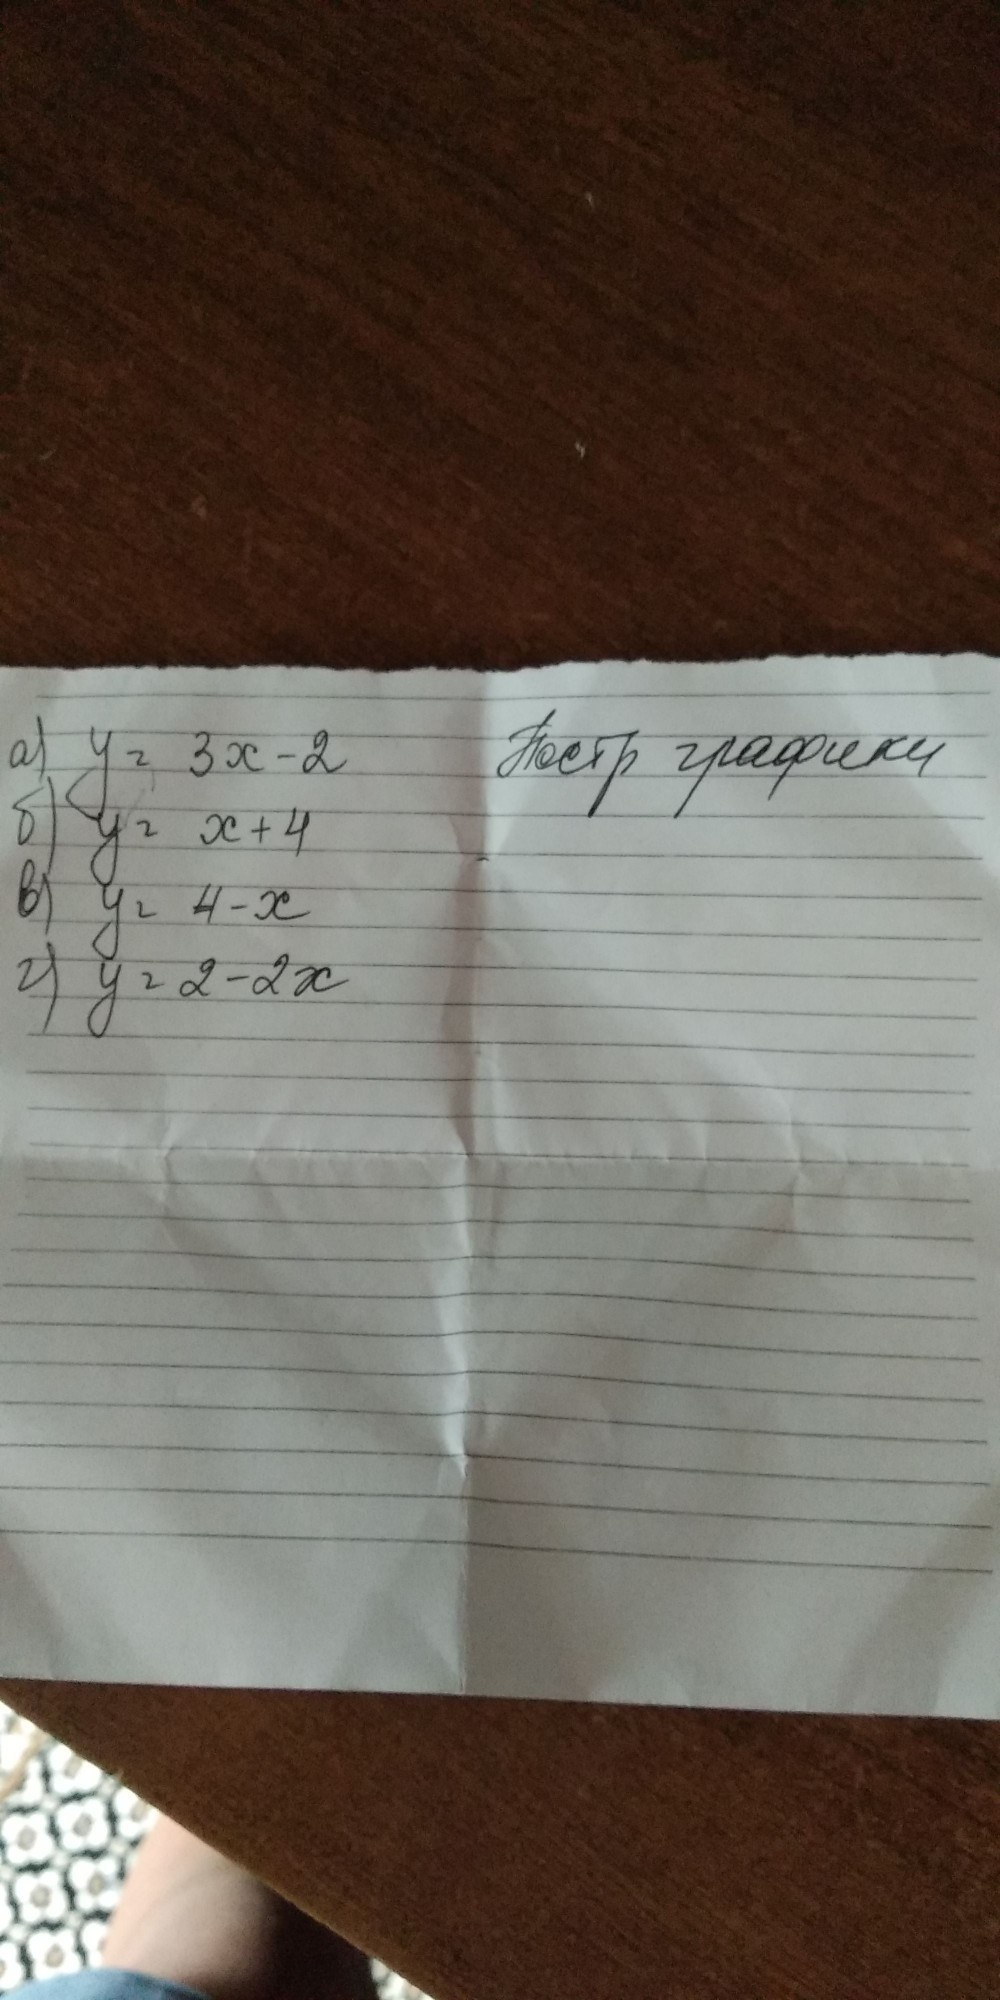 а) y = 3x - 2 Постр графики
б) y = x + 4
в) y = 4 - x
г) y = 2 - 2x